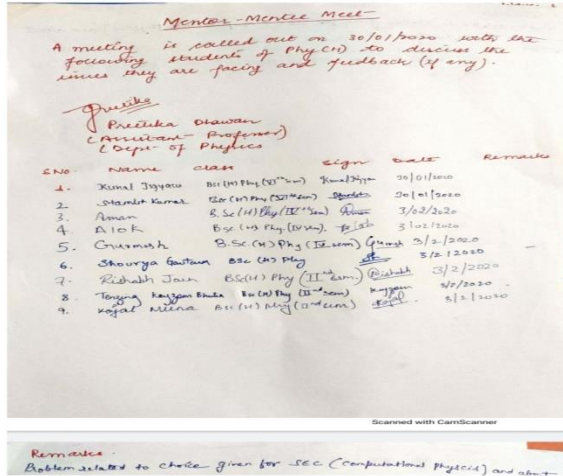 Mentor-Mentee Meet
A meeting is called out on 30/01/2020 with the
following students of Phy(H) to discuss the
issues they are facing and feedback (if any).
Preetika
Preetika Dhawan
(Assistant Professor)
(Dept. of Physics
S.No. Name Class Sign Date Remarks
1. Kunal BSc(H) Phy (VIth sem) 30/01/2020
2. Kumar BSc(H) Phy 30/01/2020
3. Aman B.Sc(H) Phy (IVth sem) Aman 3/02/2020
4. Alok B.Sc (H) Phy. (IV sem). 3/02/2020
5. Gurmesh B.Sc.(H) Phy (IV sem) 3/2/2020
6. Shourya Gautam BSc (H) Phy 3/2/2020
7. Rishabh Jain BSc(H) Phy (IInd sem). Rishabh 3/2/2020
8. Tenzing BSc(H) Phy (IInd sem) 3/2/2020
9. Kajal Meena BSc(H) Phy (IInd sem) Kajal. 3/2/2020
Scanned with CamScanner
Remarks.
Problem related to choice given for SEC (Computational Physics) and